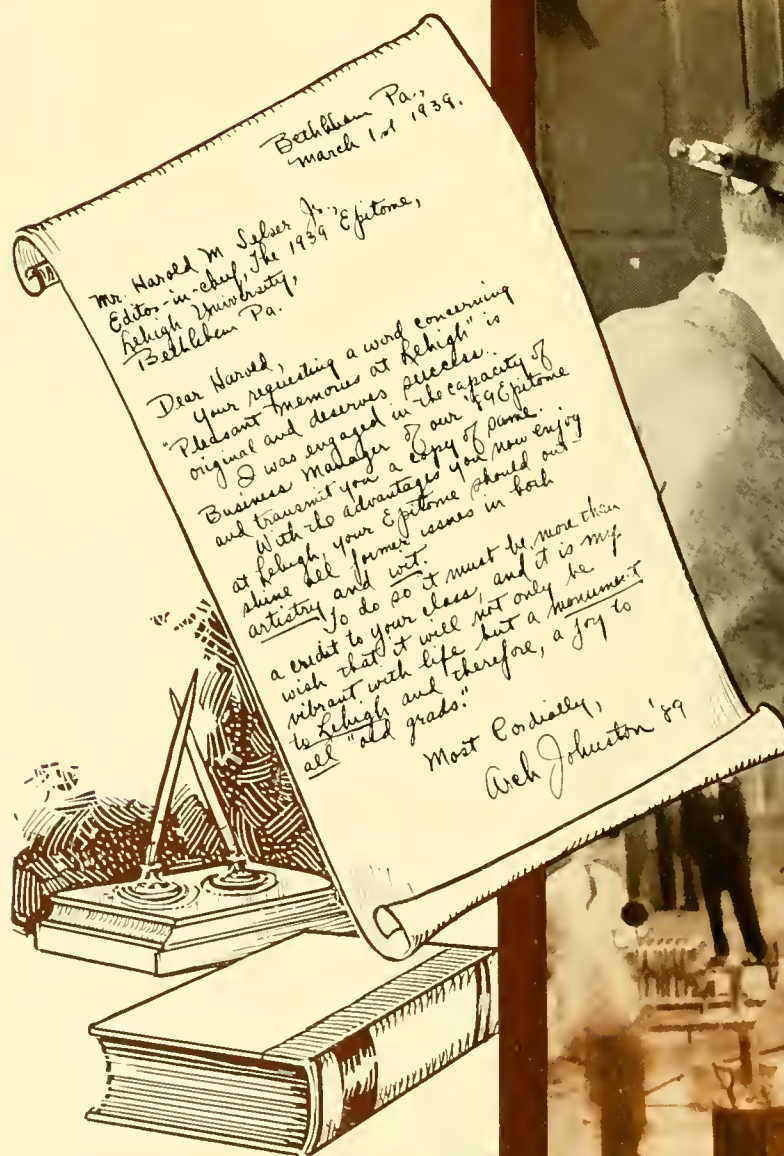 Bethlehem Pa.,
March 1st 1939.
Mr. Harold M Selser Jr.,
Editor-in-chief, The 1939 Epitome,
Lehigh University,
Bethlehem Pa.
Dear Harold,
Your requesting a word concerning
"Pleasant Memories at Lehigh" is
original and deserves success.
I was engaged in the capacity of
Business Manager of our '89 Epitome
and transmit you a copy of same.
With the advantages you now enjoy
at Lehigh, your Epitome should out-
shine all former issues in both
artistry and wit.
To do so it must be more than
a credit to your class, and it is my
wish that it will not only be
vibrant with life but a monument
to Lehigh and therefore, a joy to
all "old grads."
Most Cordially,
Arch Johnston '89